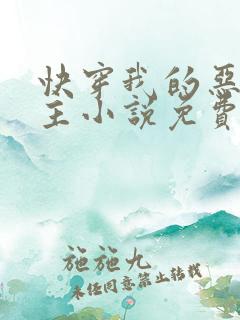 快穿我的恶
主小说免费
施施九
未经同意禁止转载